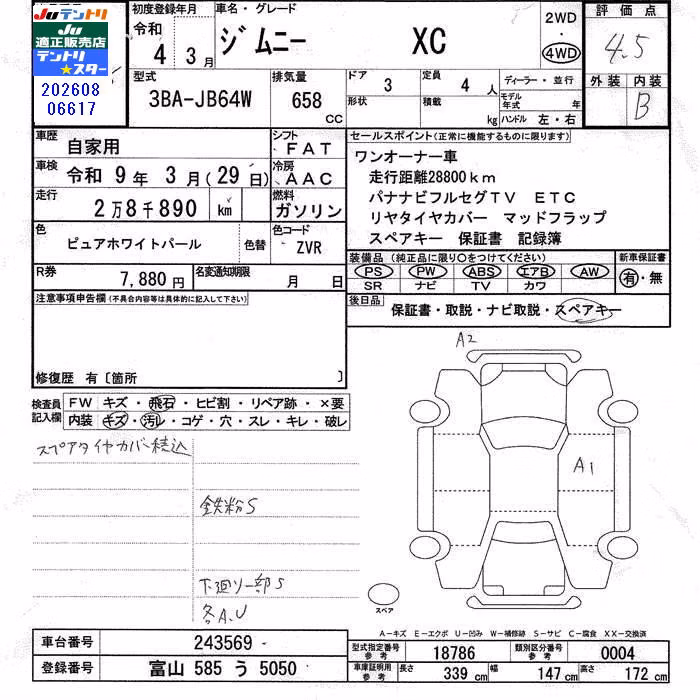 JUテントリ
JU
適正販売店
テントリ
★スター
202608
06617
初度登録年月
令和
4 3月
車名・グレード
ジムニー XC
2WD
・
4WD
評価点
4.5
外装 内装
B
型式
3BA-JB64W
排気量
658
CC
ドア
3
形状
定員
4 人
積載
kg
ディーラー・並行
モデル年式 年
ハンドル 左・右
車歴
自家用
シフト
FAT
車検
令和 9年 3月(29日)
冷房
AAC
走行
2万8千890 km
燃料
ガソリン
色
ピュアホワイトパール
色替
色コード
ZVR
R券
7,880円
名変通知期限
月 日
セールスポイント(正常に機能するものに限ります)
ワンオーナー車
走行距離28800km
パナナビフルセグTV ETC
リヤタイヤカバー マッドフラップ
スペアキー 保証書 記録簿
装備品 (純正品に限り○をつけてください)
PS PW ABS エアB AW
SR ナビ TV カワ
新車保証書
有・無
後日品
保証書・取説・ナビ取説・スペアキー
注意事項申告欄(不具合内容等は具体的に記入して下さい)
修復歴 有〔箇所 〕
検査員
記入欄
FW キズ・飛石・ヒビ割・リペア跡・×要
内装 キズ・汚レ・コゲ・穴・スレ・キレ・破レ
スペアタイヤカバー積込
鉄粉S
下廻り一部S
各A.U
A2
A1
スペア
A−キズ E−エクボ U−凹み W−補修跡 S−サビ C−腐食 XX−交換済
車台番号 243569
登録番号 富山 585 う 5050
型式指定番号
参考
18786
類別区分番号
参考
0004
車庫証明用
参考
長さ 339 cm 幅 147 cm 高さ 172 cm